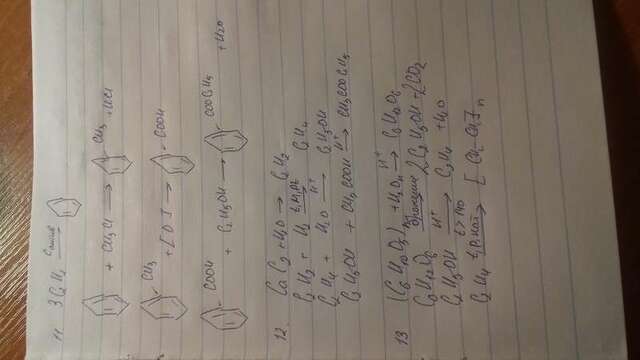 11 3C2H2 →
+ CH3Cl → CH3 + HCl
CH3 + [O] → COOH
COOH + C2H5OH → COOC2H5 + H2O
12 CaC2 + H2O → C2H2
C2H2 + H2 → C2H4
C2H4 + H2O H+ → C2H5OH
C2H5OH + CH3COOH H+ → CH3COOC2H5
13 (C6H10O5)n + H2O H+ → C6H12O6
C6H12O6 брожение → 2C2H5OH + 2CO2
C2H5OH H+ → C2H4 + H2O
C2H4 t, p, кат → [ CH2-CH2 ]n